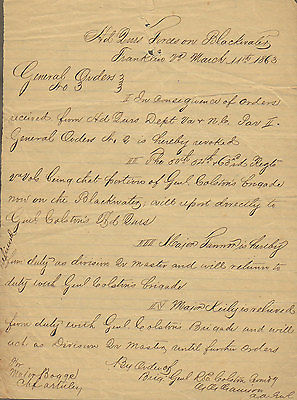 Hd Qurs Forces on Blackwater
Franklin Va March 11th 1863
General Orders
No 3
I In consequence of orders
recieved from Hd Qurs Dept Va & N.C. Par I
General Orders No 2 is hereby revoked
II The 50th & 63rd Regts
Va Vols being that portion of Genl Colston's brigade
now on the Blackwater, will report directly to
Genl Colston's Hd Qurs
III Major is hereby
from duty as division Qr Master and will return to
duty with Genl Colston's brigade
IV Major Kiely is relieved
from duty with Genl Colston's Brigade and will
act as Division Qr Master until further orders
By Order of
Brig Genl R E Colston Comdg
A A Genl
Major Boggs
Chf artillery